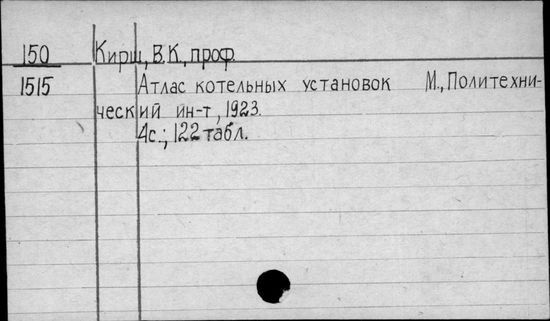 150 Кирш, В.К., проф.
1515 Атлас котельных установок М., Политехни-
ческий ин-т, 1923.
4с.; 122 табл.